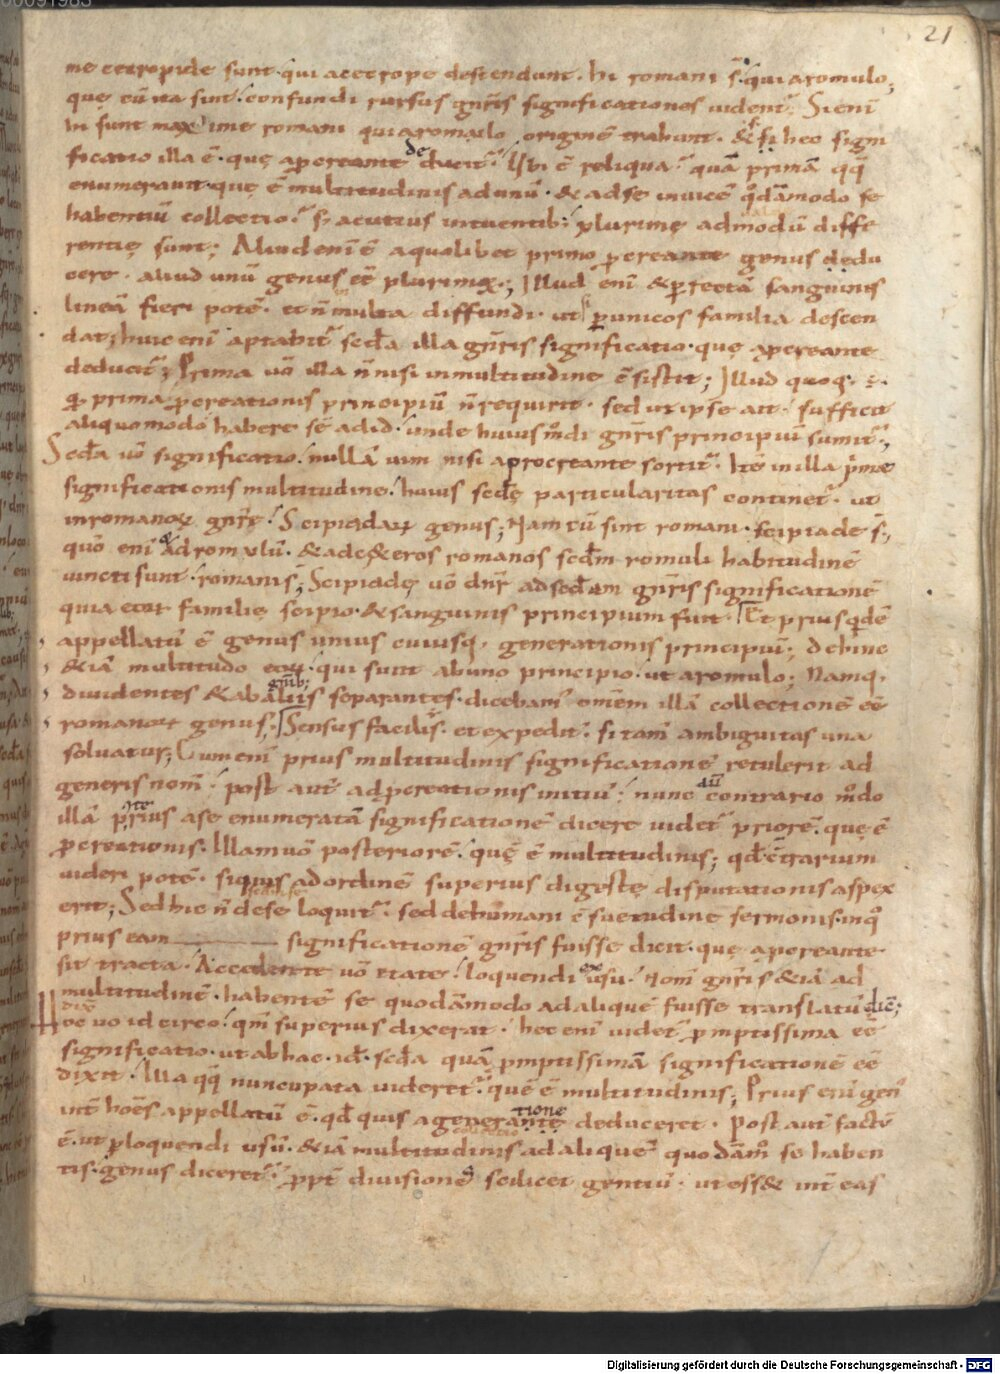 21
me cecropide sunt · qui a cecrope descendunt · hi romani s̄ · qui a romulo,
quę cū ita sint · confundi rursus gn̄ris significationes uident̄; Si enī
hi sunt maxime romani qui a romulo originē trahunt · & si hec signi
ficatio illa ē · quę a p̄creante deducit̄ · Ubi ē reliqua · quā primā qq̄
enumerauit · quę ē multitudinis ad unū · & ad se inuicē qdāmodo se
habentiū collectio · s; acutius intuentib; plurimę admodū diffe
rentię sunt; Aliud enī ē a quolibet primo p̄creante genus dedu
cere · aliud unū genus eē plurimoꝝ; Illud enī & p̱ rectā sanguinis
lineā fieri potē · et n̄ multa diffundi · ut si p̱ unicos familia descen
dat; huic enī aptabit̄ scd̄a illa gn̄ris significatio · quę a p̄creante
deducit̄; Prima uō illa n̄ nisi in multitudine ē sistit; Illud quoq̨ · ē ·
qđ prima p̄creationis principiū n̄ requirit · sed ut ipse ait · sufficit
aliquomodo habere sē ad id · unde huius m̄di gn̄ris principiū sumit̄,
Scd̄a uō significatio · nullā uim nisi a procreante sortit̄ · Itē in illa prima
significationis multitudine · huius scd̄ę particularitas continet̄ · ut
in romanoꝝ gn̄re · Scipiadaꝝ genus; Nam cū sint romani · scipiade s̄,
quō enī ad romulū · & ad cęteros romanos scd̄m romuli habitudinē
uincti sunt · romanis; Scipiadę uō dn̄r ad scd̄am gn̄ris significationē
quia eoꝝ familię scipio · & sanguinis principium fuit · Et prius qdē
appellatū ē genus unius cuiusq̨ · generationis principiū; dehinc
&iā multitudo eoꝝ · qui sunt ab uno principio · ut a romulo; Namq̨ ·
diuidentes & ab aliis gn̄ib; separantes · dicebam̄ omēm illā collectionē eē
romanoꝝ genus; Sensus facilis · et expedit̄ · si tam̄ ambiguitas una
soluatur; Cum enī prius multitudinis significationē retulerit ad
generis nom̄ · post aut̄ ad p̄creationis initiū · nunc contrario m̄do
illā prius a se enumeratā significationē dicere uidet̄ priorē · quę ē
p̄creationis · Illam uō posteriorē · quę ē multitudinis; qđ c̄trarium
uideri potē · siquis ad ordinē superius digestę disputationis aspex
erit; Sed hic n̄ de se loquit̄ · sed de humani c̄suetudine sermonis · inq̊
prius eam significationē gn̄ris fuisse dicit · quę a p̄creante
sit tracta · Accedente uō ętate · loquendi ex usu · nom̄ gn̄ris &iā ad
multitudinē · habentē se quodāmodo ad aliquē fuisse translatū dic̄;
Hoc uō id circo · qm̄ superius dixerat · hec enī uidet̄ p̄mptissima eē
significatio · ut ab hac · id · scd̄a quā p̄mptissimā significationē eē
dixit · Illa qq̄ nuncupata uideret̄ · quę ē multitudinis; Prius enī gen̄
int̄ hoēs appellatū ē · qđ quis a generatione deduceret · Post aut̄ factū
ē · ut p̱ loquendi usū · &iā multitudinis ad aliquē quodām̊ se haben
tis · genus diceret̄ · ꝓpt̄ diuisionē scilicet gentiū · ut ess& int̄ eas
Digitalisierung gefördert durch die Deutsche Forschungsgemeinschaft - DFG